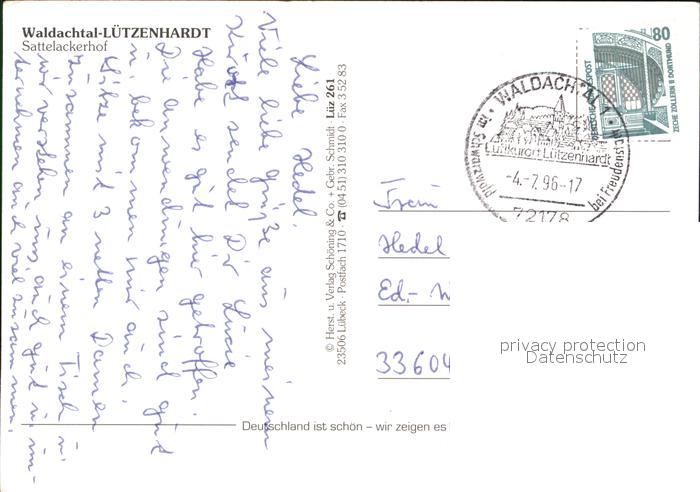 Waldachtal-LÜTZENHARDT
Sattelackerhof
Liebe Hedel.
Viele liebe Grüße aus meinem
Kur sendet Dir Lucie
Habe es gut hier getroffen.
Die anwendungen sind gut
u. bekommen mir auch.
Sitze mit 3 netten Damen
zusammen an einem Tisch u.
wir verstehen uns auch gut u. un-
ternehmen auch viel zusammen.
© Herst. u. Verlag Schöning & Co. + Gebr. Schmidt · Lüz 261
23506 Lübeck · Postfach 1710 · ☎ (04 51) 310 310 0 · Fax 3 52 83
80
DEUTSCHE BUNDESPOST
ZECHE ZOLLERN II DORTMUND
WALDACHTAL 1
im Schwarzwald
bei Freudenstadt
Luftkurort Lützenhardt
-4.-7.96-17
72178
Frau
Hedel
Ed.-
33604
privacy protection
Datenschutz
Deutschland ist schön – wir zeigen es